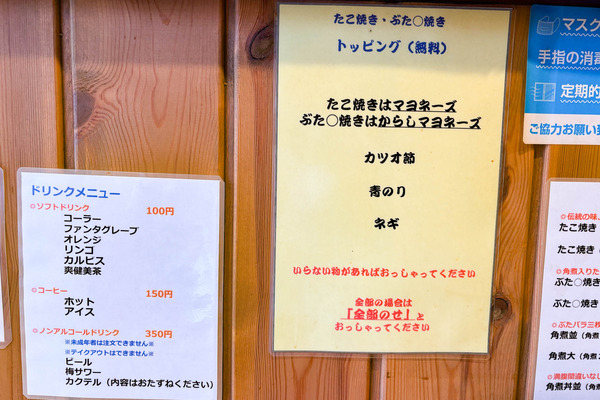 たこ焼き・ぶた〇焼き
トッピング（無料）
たこ焼きはマヨネーズ
ぶた〇焼きはからしマヨネーズ
カツオ節
青のり
ネギ
いらない物があればおっしゃってください
全部の場合は
「全部のせ」と
おっしゃってください
ドリンクメニュー
○ソフトドリンク 100円
コーラー
ファンタグレープ
オレンジ
リンゴ
カルピス
爽健美茶
○コーヒー 150円
ホット
アイス
○ノンアルコールドリンク 350円
※未成年者は注文できません※
※テイクアウトはできません※
ビール
梅サワー
カクテル（内容はおたずねください）
マスク
手指の消毒
定期的
ご協力お願い
○伝統の味、
たこ焼き
たこ焼き（
○角煮入りた
ぶた〇焼き
ぶた〇焼き
○ぶたバラ三枚
角煮並（角煮
角煮大（角煮
○満腹間違いなし
角煮丼並（角